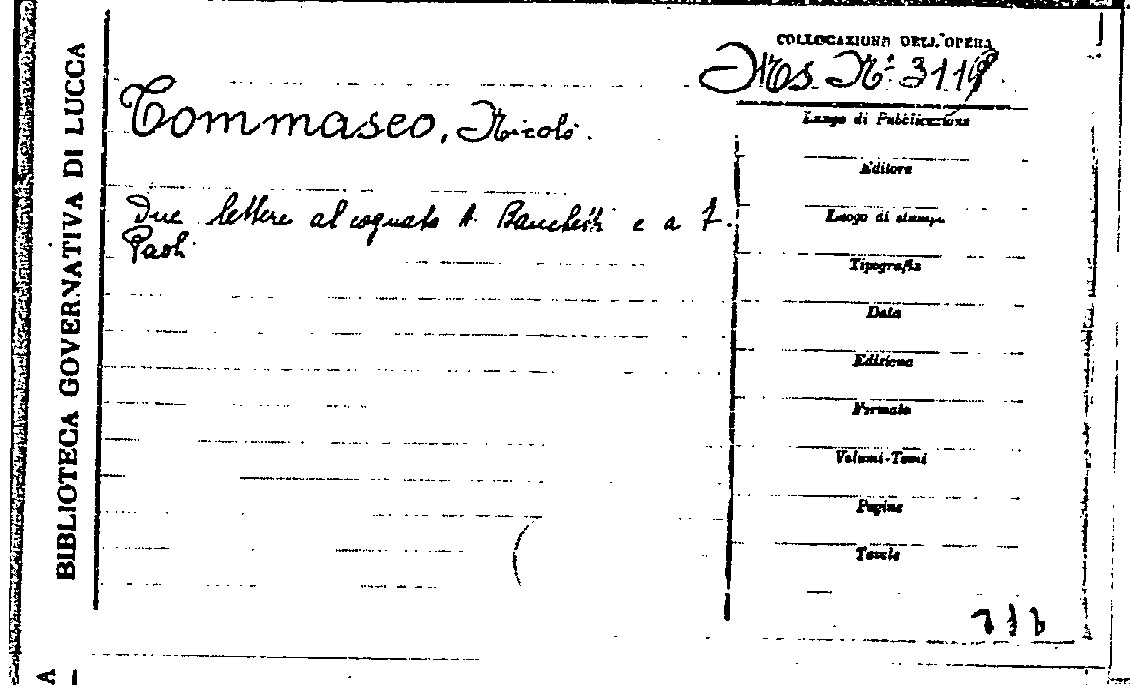 BIBLIOTECA GOVERNATIVA DI LUCCA
COLLOCAZIONE DELL'OPERA
Ms. N° 3119
Tommaseo, Nicolò.
Due lettere al cognato A. Banchetti e a F.
Paoli
Luogo di Pubblicazione
Editore
Luogo di stampa
Tipografia
Data
Edizione
Formato
Volumi-Tomi
Pagine
Tavole
A